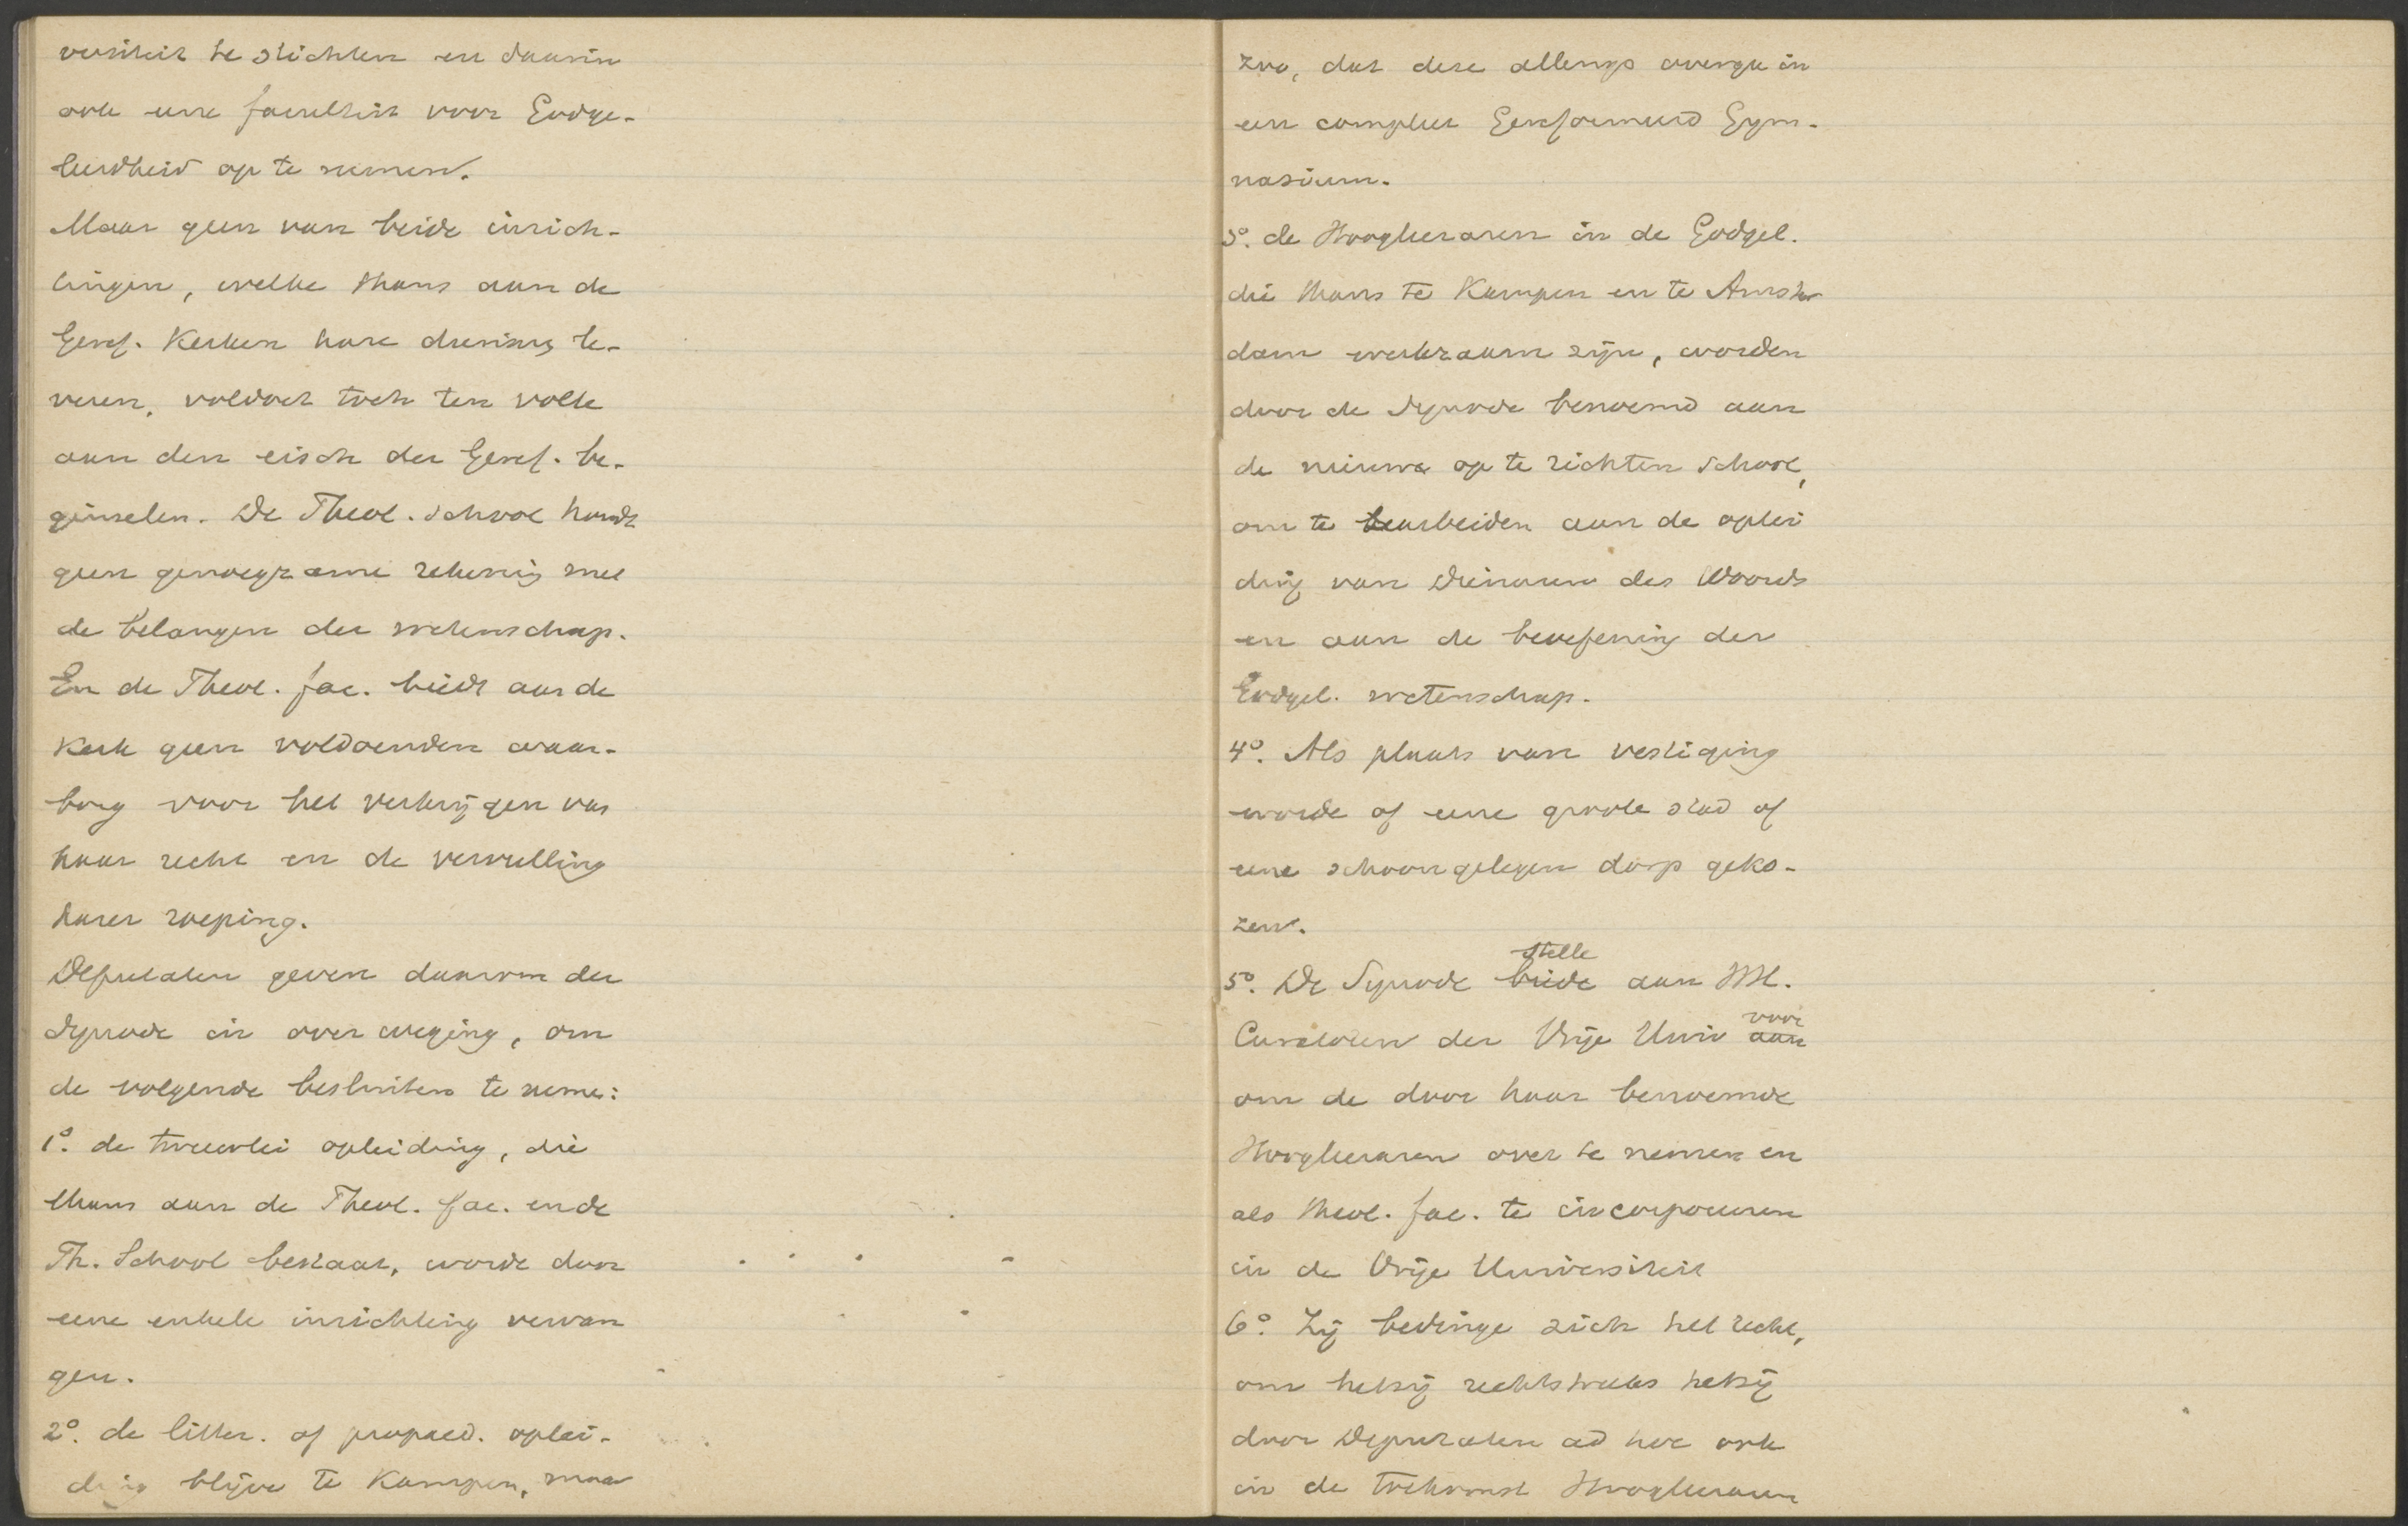 versiteit te stichten en daarin
ook eene faculteit voor Godge-
leerdheid op te nemen.
Maar geen van beide inrich-
tingen, welke thans aan de
Geref. Kerken hare diensten be-
wezen, voldoet toch ten volle
aan den eisch der Geref. be-
ginselen. De Theol. School houdt
geen genoegzame rekening met
de belangen der wetenschap.
En de Theol. fac. biedt aan de
Kerk geen voldoenden waar-
borg voor het verkrijgen van
haar recht en de vervulling
harer roeping.
Deputaten geven daarom der
Synode in overweging, om
de volgende besluiten te nemen:
1º. de tweeërlei opleiding, die
thans aan de Theol. fac. en de
Th. School bestaat, worde door
eene enkele inrichting vervan
gen.
2º. de litter. of propaed. oplei-
ding blijve te Kampen, maar
zoo, dat deze allengs overga in
een compleet Gereformeerd Gym-
nasium.
3º. de Hoogleeraren in de Godgel.
die thans te Kampen en te Amster
dam werkzaam zijn, worden
door de Synode benoemd aan
de nieuwe op te richten School,
om te arbeiden aan de oplei
ding van Dienaren des Woords
en aan de beoefening der
Godgel. wetenschap.
4º. Als plaats van vestiging
worde of eene groote stad of
eene schoongelegen dorp geko-
zen.
stelle
5º. De Synode biede aan HH.
voor
Curatoren der Vrije Univ aan
om de door haar benoemde
Hoogleeraren over te nemen en
als theol. fac. te incorporeeren
in de Vrije Universiteit
6º. Zij bedinge zich het recht,
om hetzij rechtstreeks hetzij
door Deputaten ad hoc ook
in de toekomst Hoogleeraren